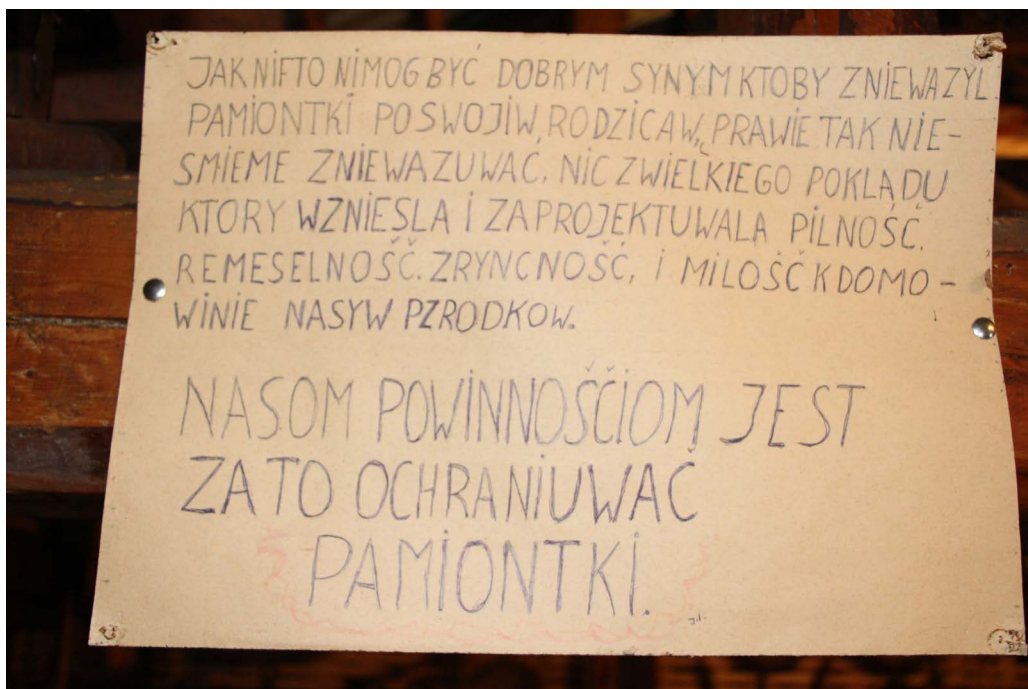 JAK NIFTO NIMOG BYĆ DOBRYM SYNYM KTOBY ZNIEWAZYL
PAMIONTKI PO SWOJIW, RODZICAW, PRAWIE TAK NIE-
SMIEME ZNIEWAZUWAĆ. NIC ZWIELKIEGO POKLĄDU
KTORY WZNIESLA I ZAPROJEKTUWALA PILNOŚĆ.
REMESELNOŠČ. ZRYNCNOŠČ, I MILOŠČ K DOMO-
WINIE NASYW PZRODKOW.
NASOM POWINNOŠČIOM JEST
ZA TO OCHRANIUWAČ
PAMIONTKI.